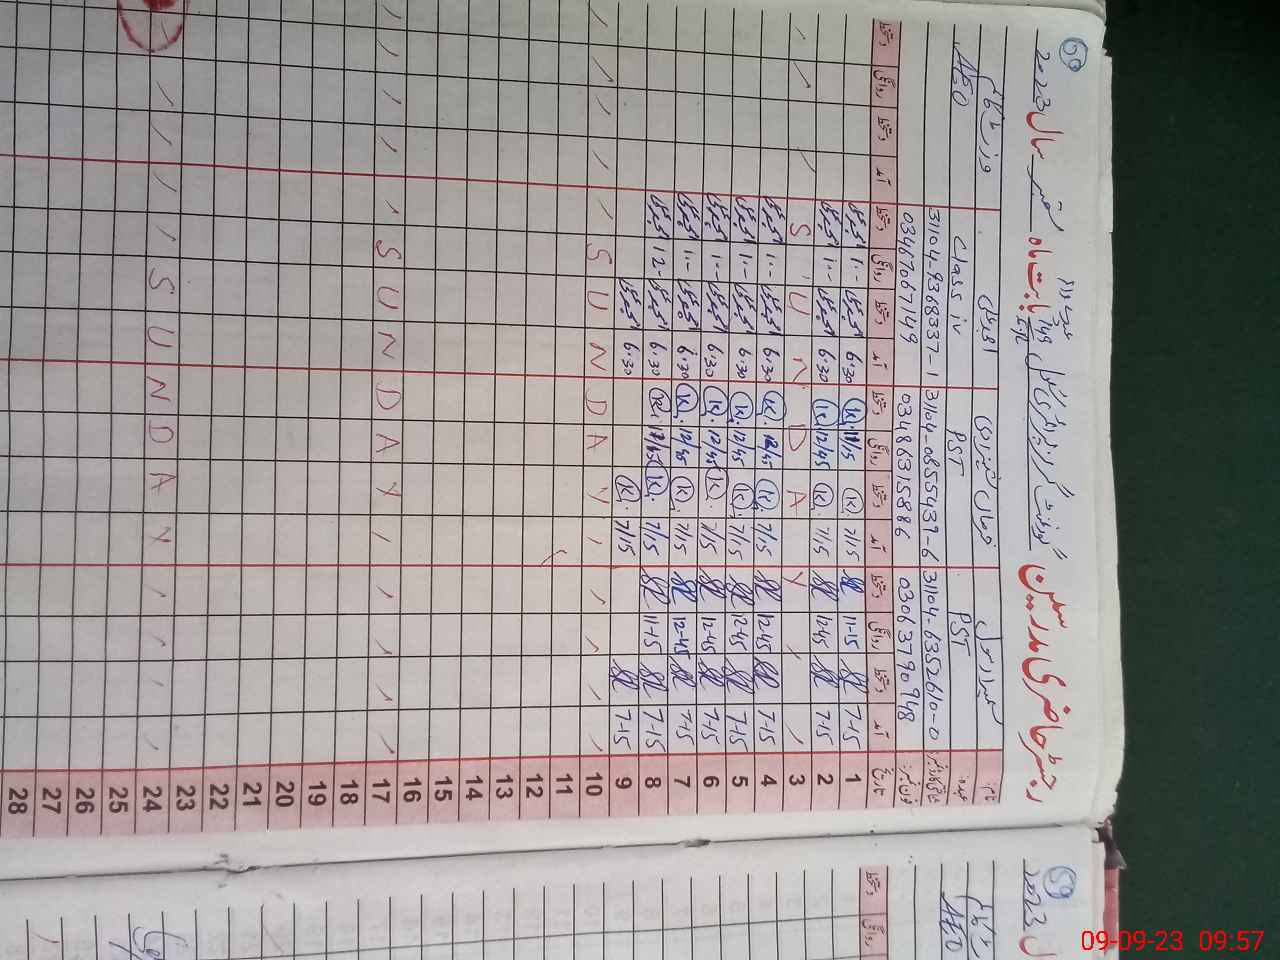 60
رجسٹر حاضری مدرسین گورنمنٹ گرلز پرائمری سکول بابت ماہ ستمبر سال 2023
نام
عبدالرسول
اقبال
وزٹ کالم
عہدہ
PST
PST
Class iv
AEO
شناختی کارڈ نمبر
31104-6352610-0
31104-0855437-6
31104-9368337-1
فون نمبر
03063790948
03486315886
03467067149
تاریخ آمد دستخط روانگی دستخط آمد دستخط روانگی دستخط آمد دستخط روانگی دستخط آمد دستخط روانگی دستخط
1 7-15 11-15 7/15 11/15 6.30 1.--
2 7-15 12-45 7/15 12/45 6.30 1.--
3 S U N D A Y
4 7-15 12-45 7/15 12/45 6.30 1.--
5 7-15 12-45 7/15 12/45 6.30 1.--
6 7-15 12-45 7/15 12/45 6.30 1.--
7 7-15 12-45 7/15 12/45 6.30 1.--
8 7-15 11-15 7/15 11/15 6.30 12-
9 7-15 7/15 6.30
10 S U N D A Y
11
12
13
14
15
16
17 S U N D A Y
18
19
20
21
22
23
24 S U N D A Y
25
26
27
28
59
2023
AEO
دستخط
روانگی
09-09-23 09:57